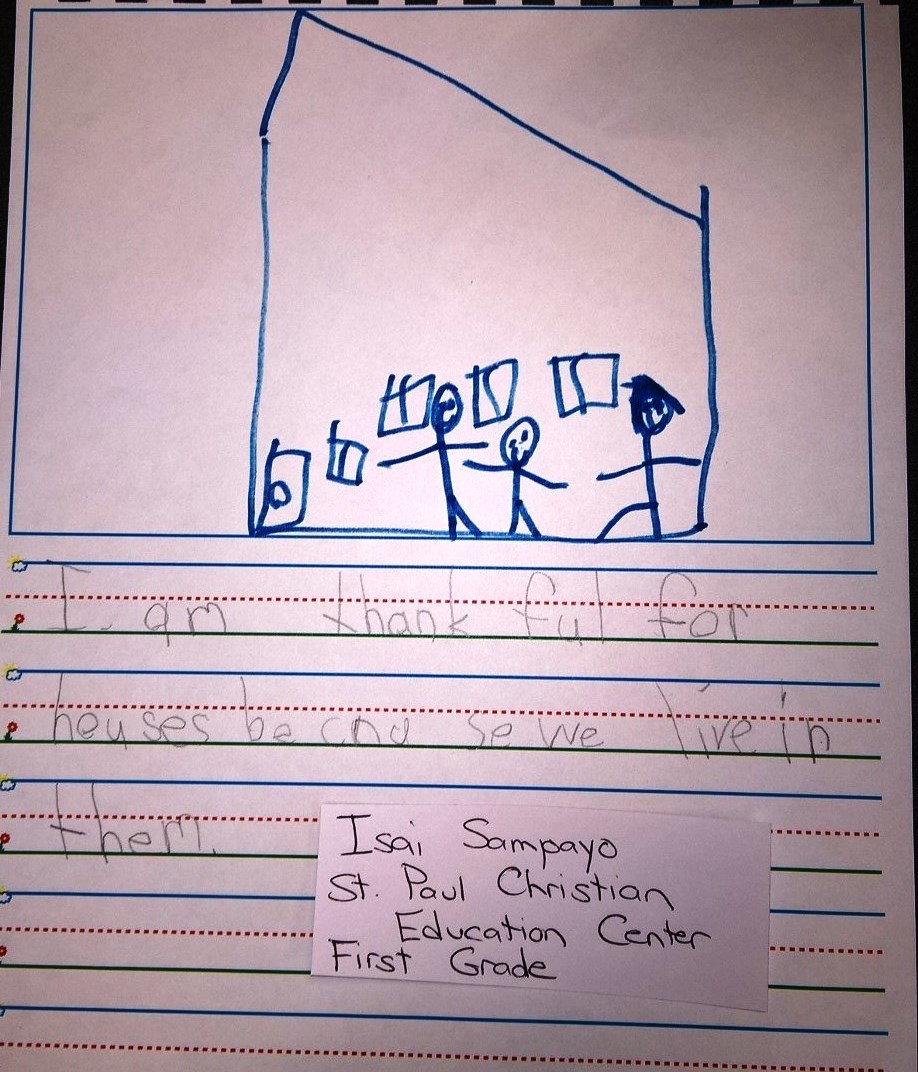 I am thank ful for
houses be cna se we live in
them.
Isai Sampayo
St. Paul Christian
Education Center
First Grade